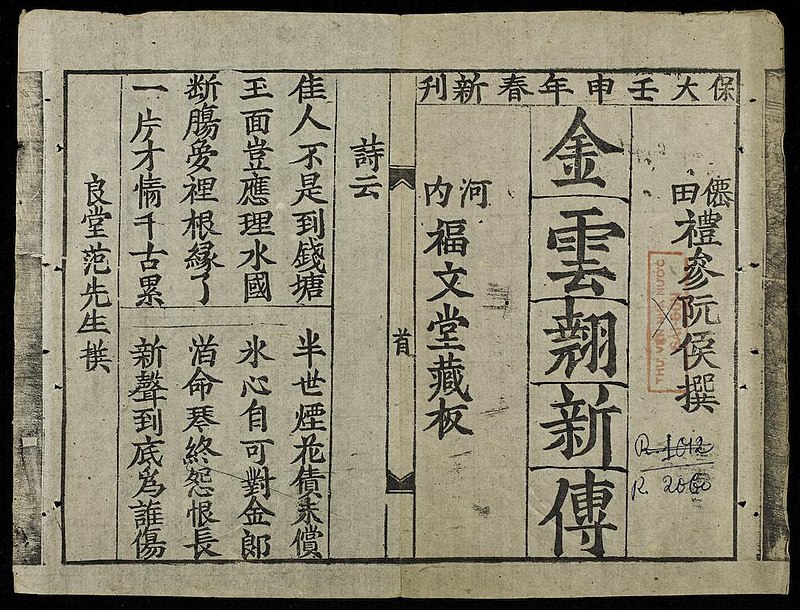 保大壬申年春新刊
僊田禮參阮侯撰
金雲翹新傳
河内福文堂藏板
首
詩云
佳人不是到錢塘
半世煙花債未償
玉面豈應理水國
氷心自可對金郎
断腸愛裡根緣了
命琴終怨恨長
一片才情千古累
新聲到底為誰傷
良堂范先生撰
R. 1012
R. 2060